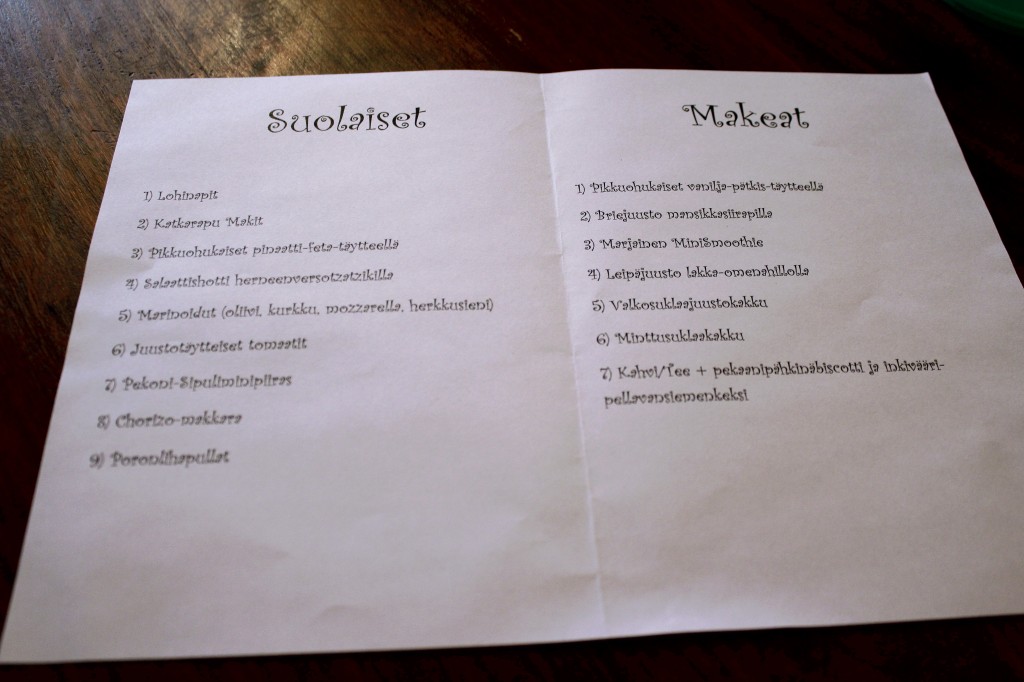 Suolaiset
1) Lohinapit
2) Katkarapu Makit
3) Pikkuohukaiset pinaatti-feta-täytteellä
4) Salaattishotti herneenversotzatzikilla
5) Marinoidut (oliivi, kurkku, mozzarella, herkkusieni)
6) Juustotäytteiset tomaatit
7) Pekoni-Sipuliminipiiras
8) Chorizo-makkara
9) Poronlihapullat
Makeat
1) Pikkuohukaiset vanilja-pätkis-täytteellä
2) Briejuusto mansikkasiirapilla
3) Marjainen MiniSmoothie
4) Leipäjuusto lakka-omenahillolla
5) Valkosuklaajuustokakku
6) Minttusuklaakakku
7) Kahvi/Tee + pekaanipähkinäbiscotti ja inkivääri-
pellavansiemenkeksi